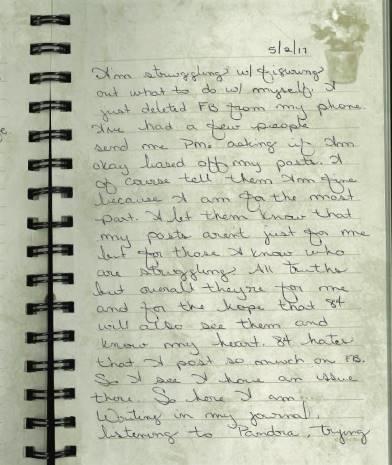 5/2/17
I'm struggling w/ figuring
out what to do w/ myself. I
just deleted FB from my phone.
I've had a few people
send me PMs asking if I'm
okay based off my posts. I
of course tell them I'm fine
because I am for the most
part. I let them know that
my posts arent just for me
but for those I know who
are struggling. All truths
but overall they're for me
and for the hope that
will also see them and
know my heart. hates
that I post so much on FB.
So I see I have an issue
there. So here I am.
Writing in my journal,
listening to Pandora, trying